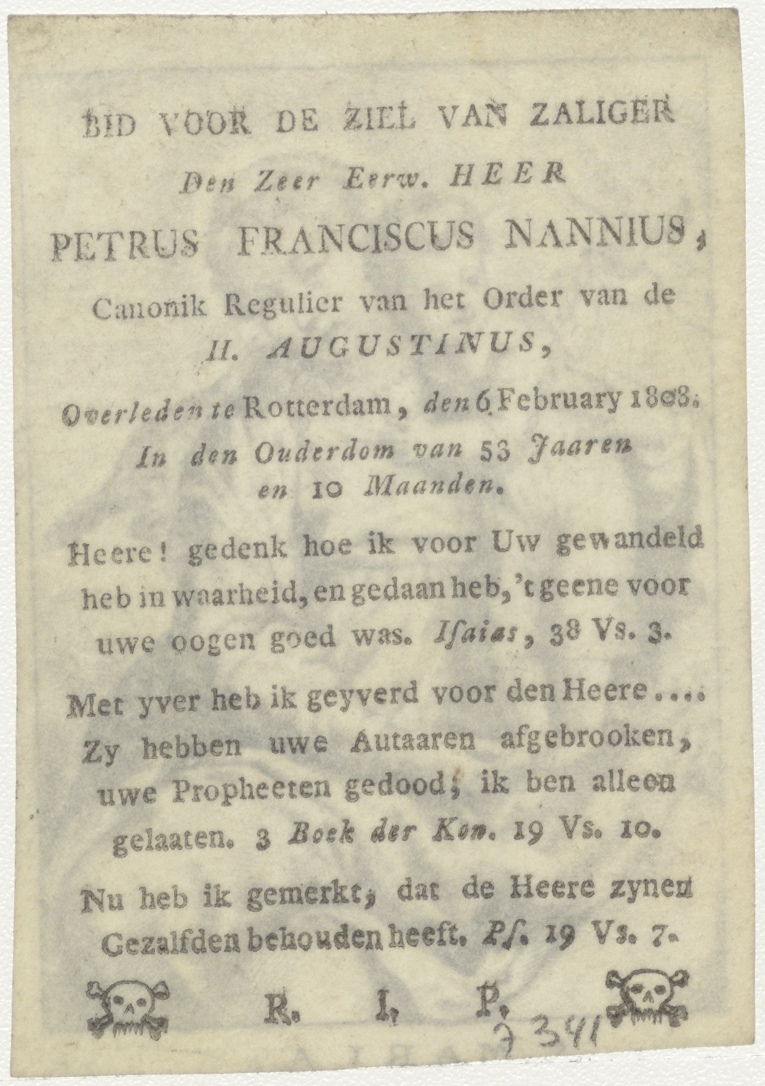 BID VOOR DE ZIEL VAN ZALIGER
Den Zeer Eerw. HEER
PETRUS FRANCISCUS NANNIUS,
Canonik Regulier van het Order van de
H. AUGUSTINUS,
Overleden te Rotterdam, den 6 February 1808.
In den Ouderdom van 53 Jaaren
en 10 Maanden.
Heere! gedenk hoe ik voor Uw gewandeld
heb in waarheid, en gedaan heb, 't geene voor
uwe oogen goed was. Iſaias, 38 Vs. 3.
Met yver heb ik geyverd voor den Heere....
Zy hebben uwe Autaaren afgebrooken,
uwe Propheeten gedood; ik ben alleen
gelaaten. 3 Boek der Kon. 19 Vs. 10.
Nu heb ik gemerkt, dat de Heere zynen
Gezalfden behouden heeft. Pſ. 19 Vs. 7.
R. I. P.
7341
MARIA